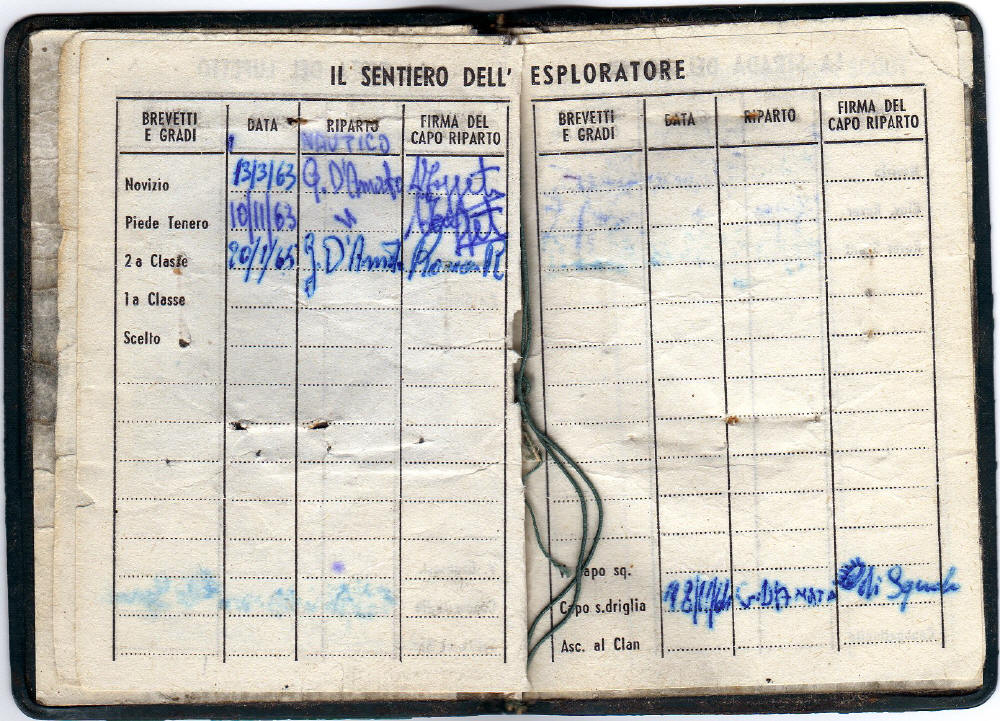 IL SENTIERO DELL' ESPLORATORE
BREVETTI E GRADI DATA RIPARTO FIRMA DEL CAPO RIPARTO
NAUTICO
Novizio 13/3/63 G. D'Amato
Piede Tenero 10/11/63 "
2a Classe 20/1/65 G. D'Amato
1a Classe
Scelto
BREVETTI E GRADI DATA RIPARTO FIRMA DEL CAPO RIPARTO
Capo sq.
Capo s.driglia G. D'AMATO
Asc. al Clan